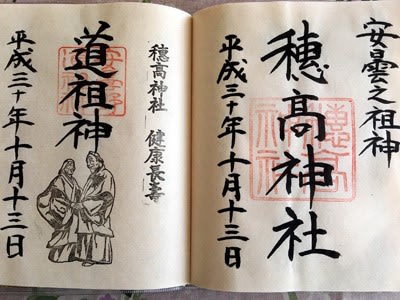 安曇之祖神
穂高神社
平成三十年十月十三日
穂高神社　健康長寿
道祖神
平成三十年十月十三日